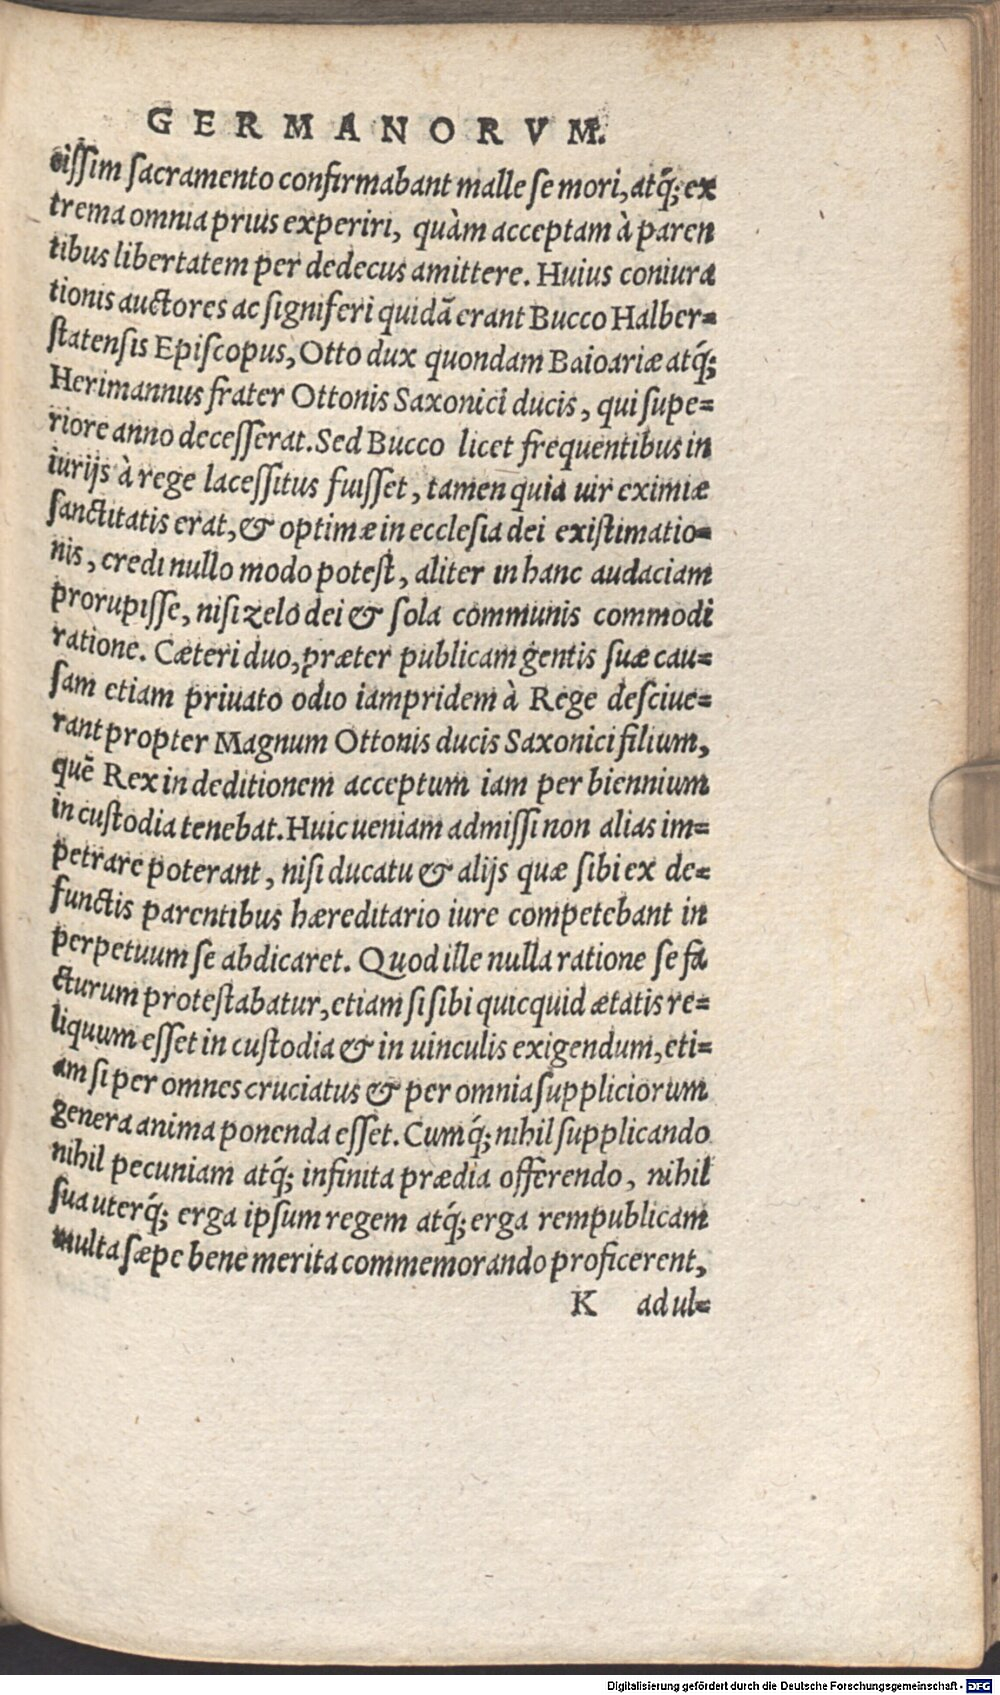 GERMANORVM.
cissim sacramento confirmabant malle se mori, atq́; ex
trema omnia prius experiri, quàm acceptam à paren
tibus libertatem per dedecus amittere. Huius coniura
tionis auctores ac signiferi quidā erant Bucco Halber=
statensis Episcopus, Otto dux quondam Baioariæ atq́;
Herimannus frater Ottonis Saxonici ducis, qui supe=
riore anno decesserat. Sed Bucco licet frequentibus in
iurijs à rege lacessitus fuisset, tamen quia uir eximiæ
sanctitatis erat, & optimæ in ecclesia dei existimatio=
nis, credi nullo modo potest, aliter in hanc audaciam
prorupisse, nisi zelo dei & sola communis commodi
ratione. Cæteri duo, præter publicam gentis suæ cau=
sam etiam priuato odio iampridem à Rege desciue=
rant propter Magnum Ottonis ducis Saxonici filium,
quē Rex in deditionem acceptum iam per biennium
in custodia tenebat. Huic ueniam admissi non alias im=
petrare poterant, nisi ducatu & alijs quæ sibi ex de=
functis parentibus hæreditario iure competebant in
perpetuum se abdicaret. Quod ille nulla ratione se fa
cturum protestabatur, etiam si sibi quicquid ætatis re=
liquum esset in custodia & in uinculis exigendum, eti=
am si per omnes cruciatus & per omnia suppliciorum
genera anima ponenda esset. Cumq́; nihil supplicando
nihil pecuniam atq́; infinita prædia offerendo, nihil
sua uterq́; erga ipsum regem atq́; erga rempublicam
multa sæpe bene merita commemorando proficerent,
K ad ul=
Digitalisierung gefördert durch die Deutsche Forschungsgemeinschaft - DFG